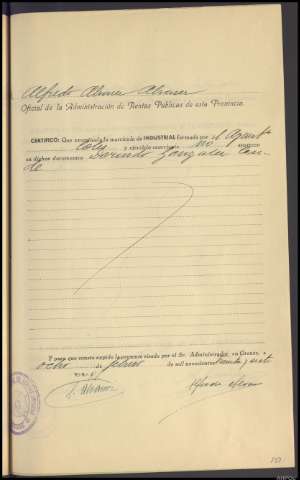 Alfredo Alvarez Alvarez
Oficial de la Administración de Rentas Públicas de esta Provincia
CERTIFICO: Que examinada la matrícula de INDUSTRIAL formada por el Ayunt
Coles y ejercicio corriente no aparece
en dichos documentos Dorindo González Con-
de
Y para que conste expido la presente visada por el Sr. Administrador, en Orense, a
ocho de febrero de mil novecientos treinta y siete
V.º B.º